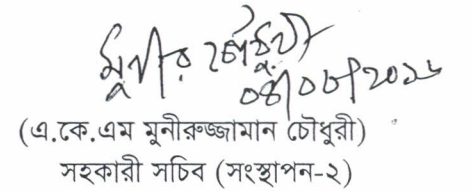 মুনীর চৌধুরী
০৪/০৮/২০১৬
(এ.কে.এম মুনীরুজ্জামান চৌধুরী)
সহকারী সচিব (সংস্থাপন-২)